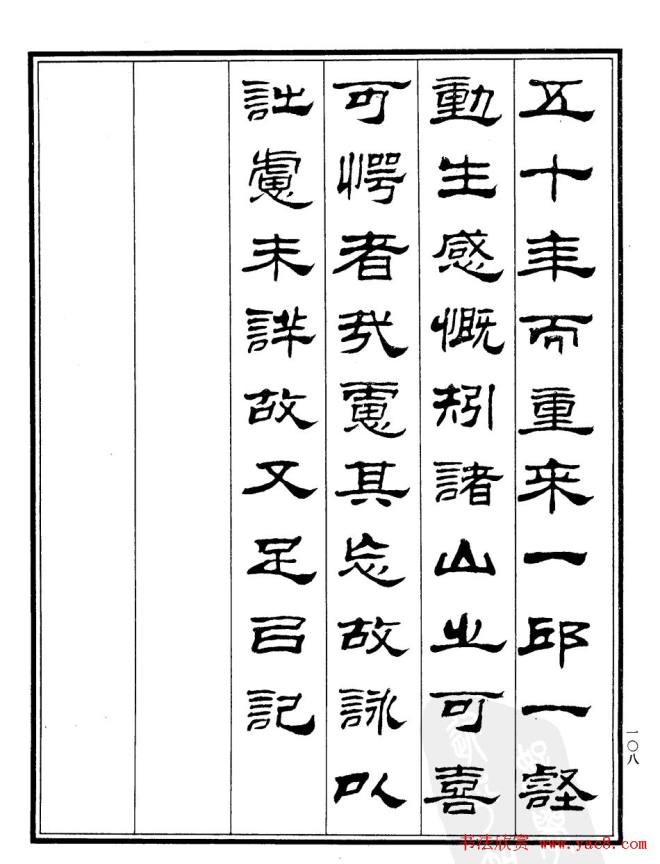 五十年而重来一邱一壑
動生感慨矧諸山之可喜
可愕者哉慮其忘故詠以
詩慮未詳故又足㠯記
一〇八
书法欣赏 www.yac8.com